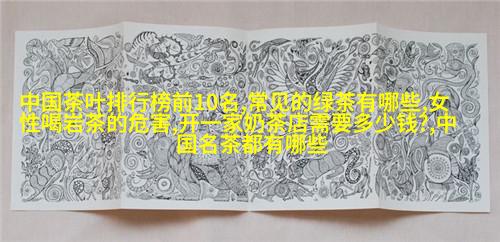 中国茶叶排行榜前10名,常见的绿茶有哪些,女
性喝岩茶的危害,开一家奶茶店需要多少钱?,中
国名茶都有哪些